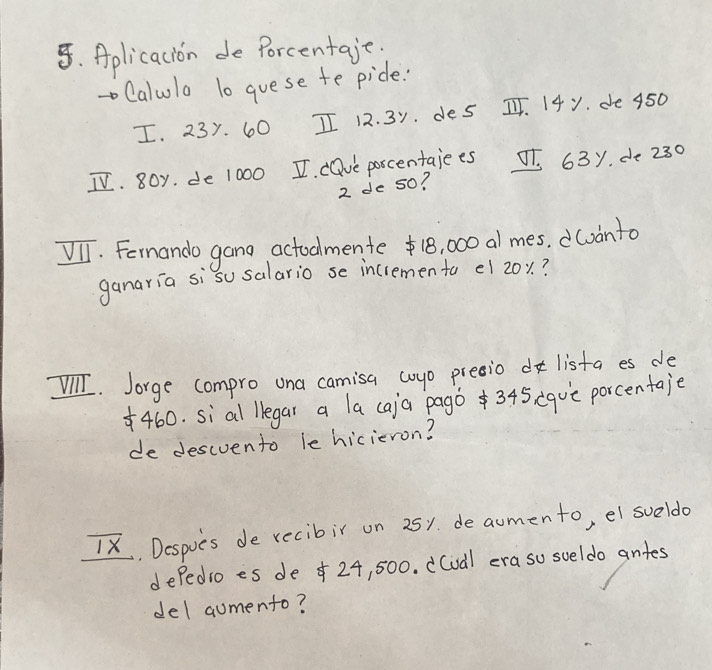 5. Aplicación de Porcentaje.
→ Calculo lo que se te pide:
I. 23%. 60 II 12.3%. de 5 III. 14%. de 950
IV. 80%. de 1000 V. ¿Qué porcentaje es 2 de 50? VI. 63%. de 230
VII. Fernando gana actualmente $18,000 al mes. ¿Cuánto
ganaría si su salario se incrementa el 20%?
VIII. Jorge compro una camisa cuyo precio de lista es de
$460. si al llegar a la caja pagó $345 ¿qué porcentaje
de descuento le hicieron?
IX. Después de recibir un 25%. de aumento, el sueldo
de Pedro es de $24,500. ¿Cuál era su sueldo antes
del aumento?